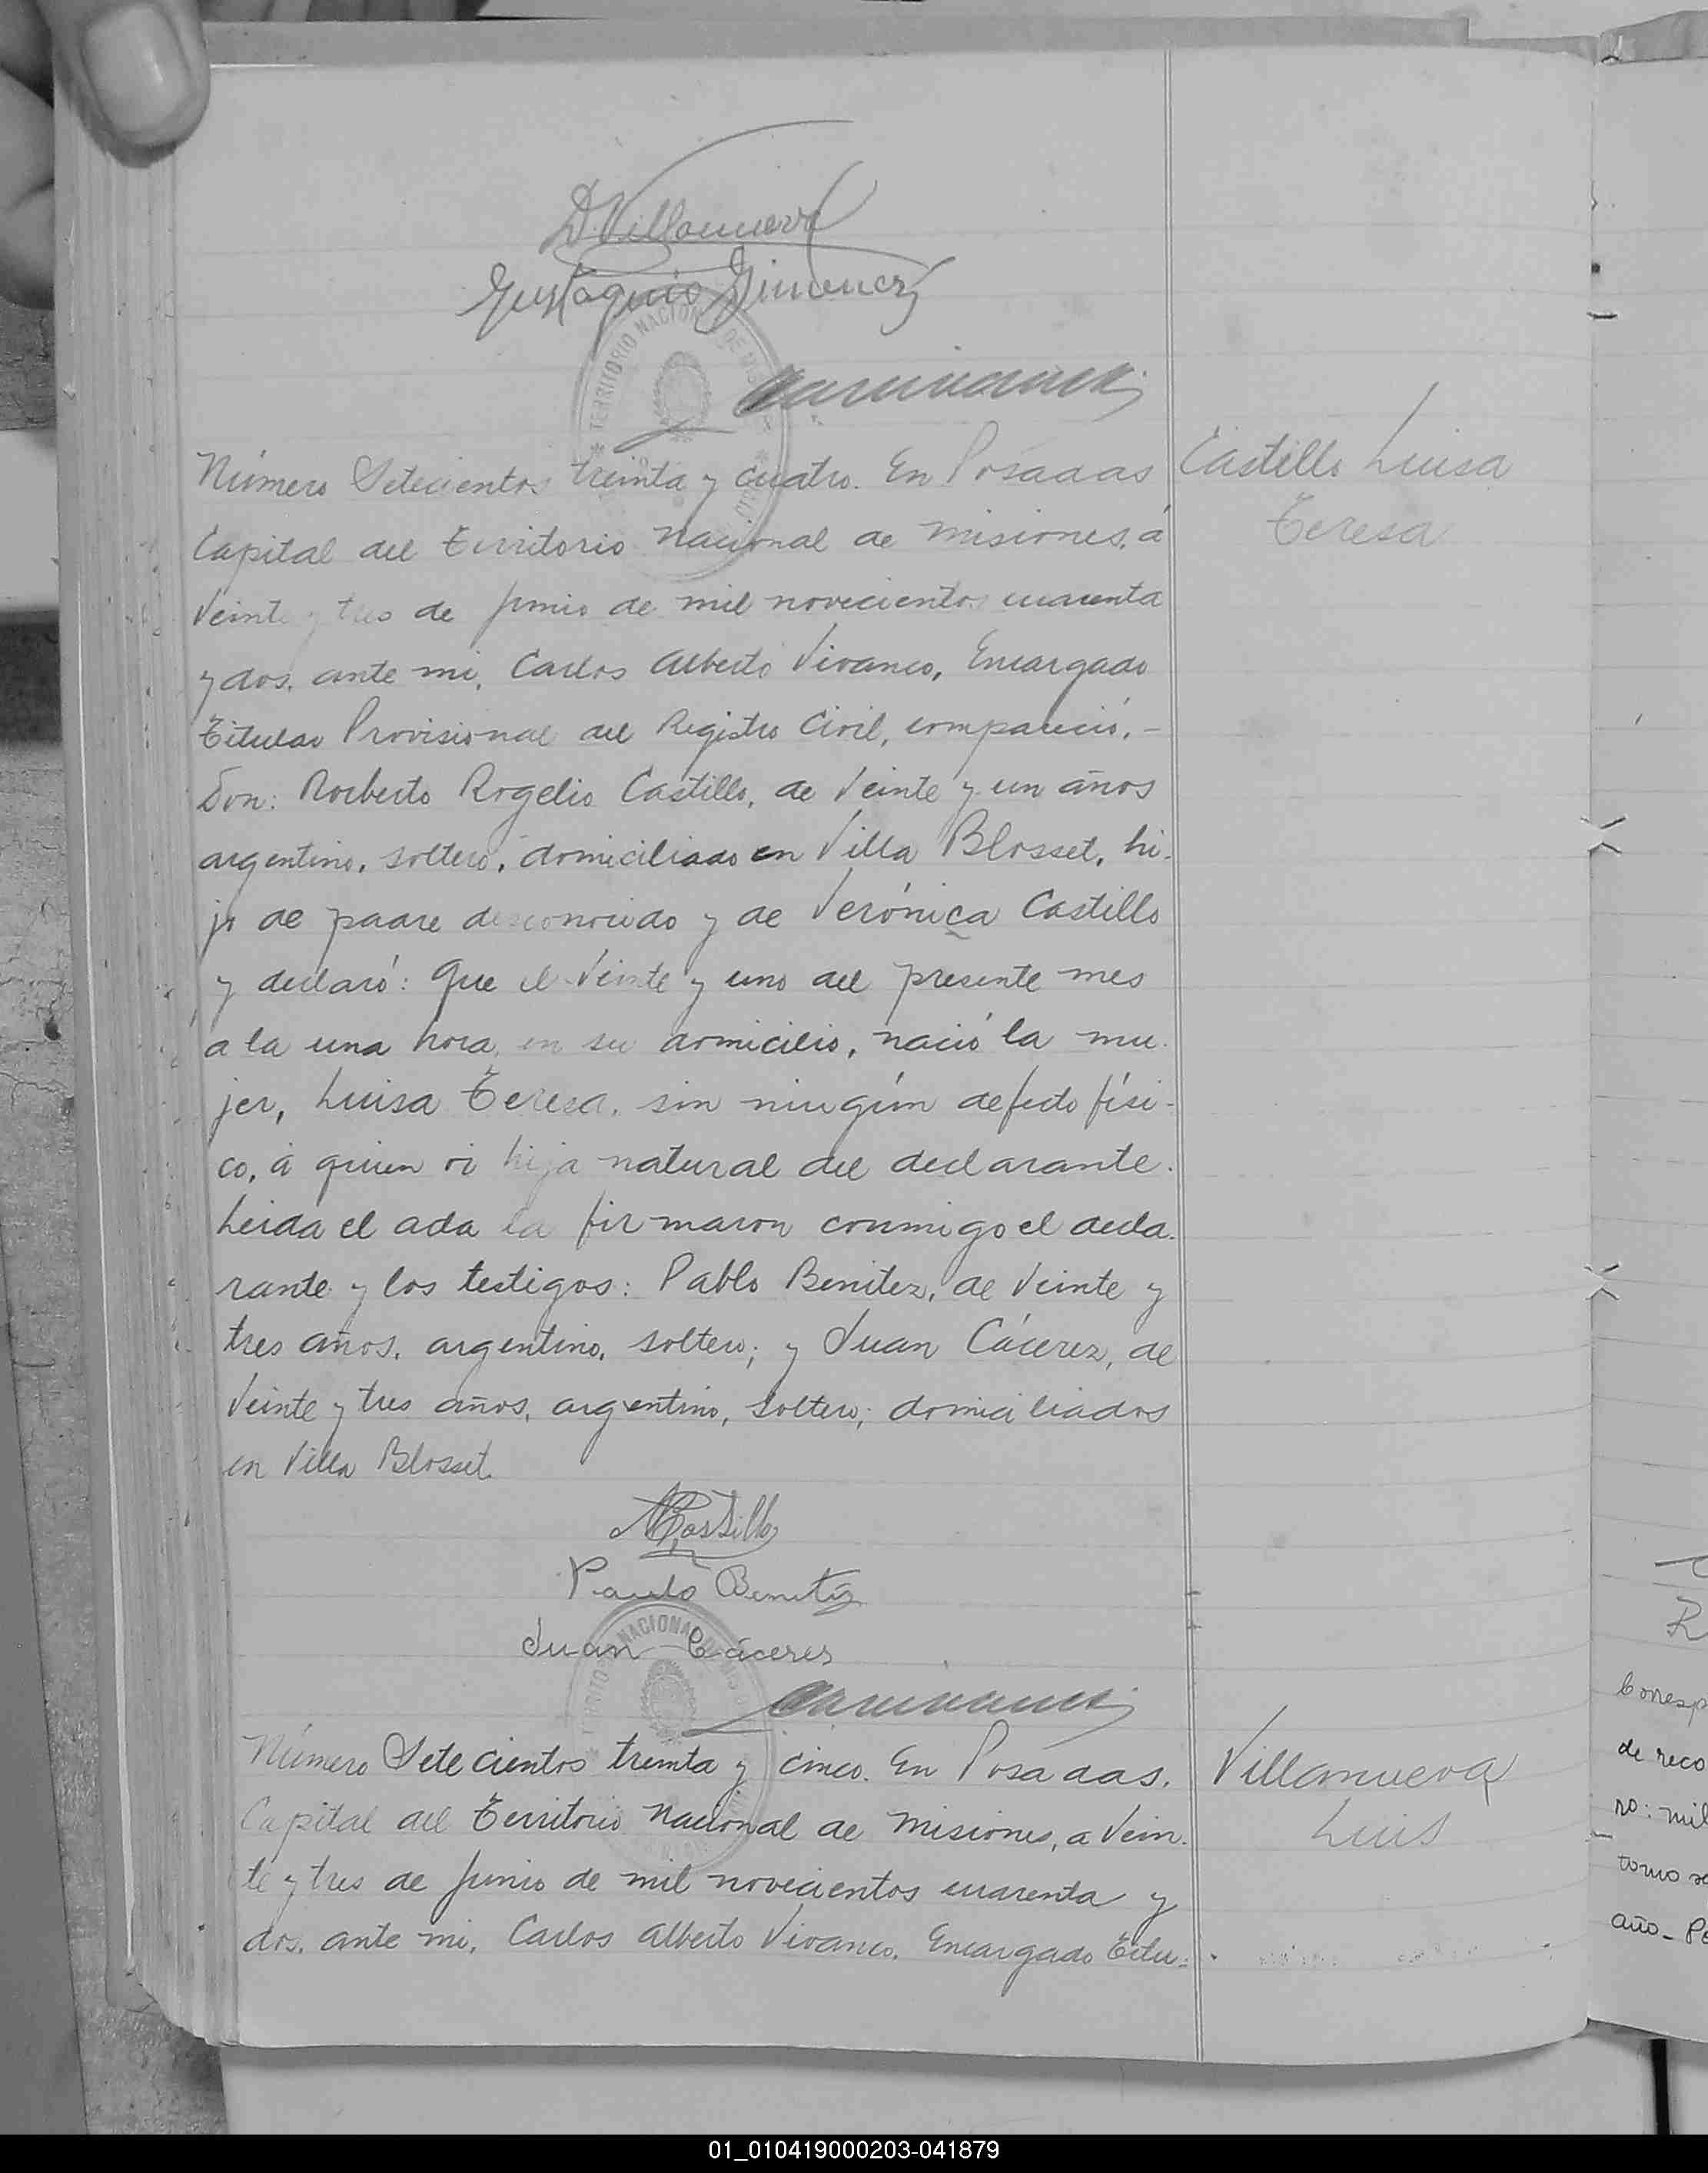 D. Villanueva
Eustaquio Gimenez
TERRITORIO NACIONAL DE MIS
Número Setecientos treinta y cuatro. En Posadas
Castillo Luisa
Teresa
Capital del Territorio Nacional de Misiones, á
veinte y tres de junio de mil novecientos cuarenta
y dos, ante mi, Carlos Alberto Vivanco, Encargado
Titular Provisional del Registro Civil, compareció, -
Don: Norberto Rogelio Castillo, de veinte y un años
argentino, soltero, domiciliado en Villa Blosset, hi-
jo de padre desconocido y de Verónica Castillo
y declaró: Que el veinte y uno del presente mes
a la una hora, en su domicilio, nació la mu-
jer, Luisa Teresa, sin ningún defecto físi-
co, á quien vi hija natural del declarante.
Leida el acta la firmaron conmigo el decla-
rante y los testigos: Pablo Benitez, de veinte y
tres años, argentino, soltero; y Juan Cácerez, de
veinte y tres años, argentino, soltero; domiciliados
en Villa Blosset.
Castillo
Paulo Benitez
Juan Cáceres
TERRITORIO NACIONAL DE MIS
Número Setecientos treinta y cinco. En Posadas,
Villanueva
Luis
Capital del Territorio Nacional de Misiones, a vein-
te y tres de junio de mil novecientos cuarenta y
dos, ante mi, Carlos Alberto Vivanco, Encargado Titu-
R
Corresp
de reco
ro: mil
tomo se
año_ Po
01_010419000203-041879